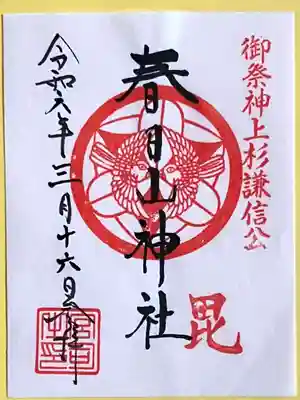 御祭神上杉謙信公
毘
春日山神社
令和六年三月十六日参拝